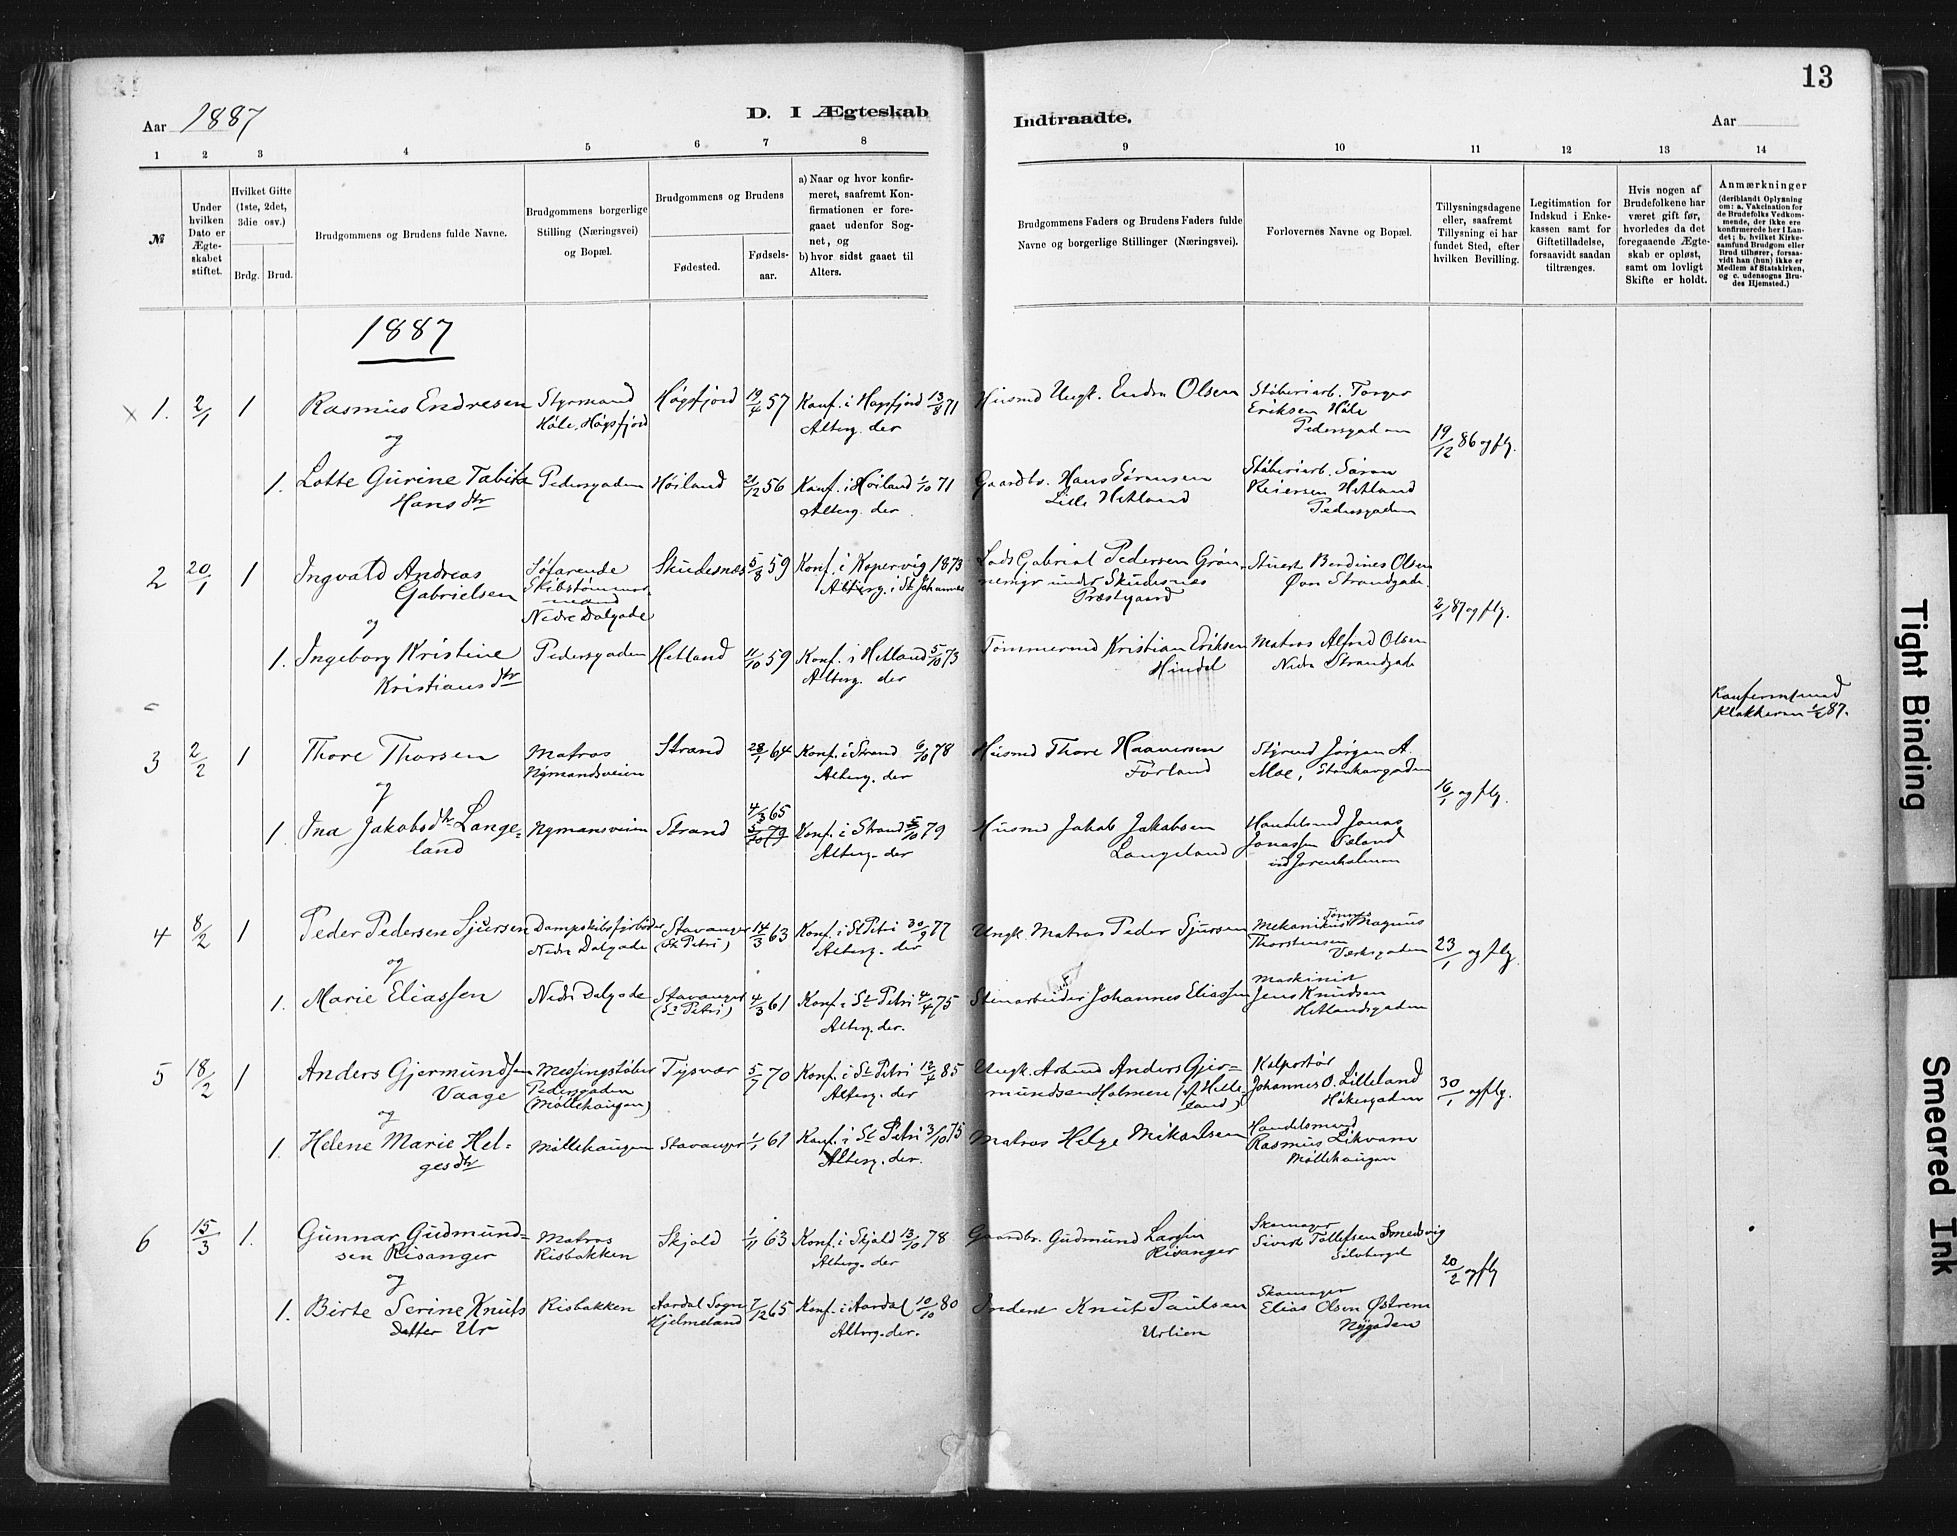 13
Aar 1887
D. I Ægteskab Indtraadte.
Aar
1 2 3 4 5 6 7 8 9 10 11 12 13 14
№
Under hvilken Dato er Ægteskabet stiftet.
Hvilket Gifte (1ste, 2det, 3die osv.)
Brdg. Brud.
Brudgommens og Brudens fulde Navne.
Brudgommens borgerlige Stilling (Næringsvei) og Bopæl.
Brudgommens og Brudens
Fødested.
Fødsels-aar.
a) Naar og hvor konfirmeret, saafremt Konfirmationen er foregaaet udenfor Sognet, og
b) hvor sidst gaaet til Alters.
Brudgommens Faders og Brudens Faders fulde Navne og borgerlige Stillinger (Næringsvei).
Forlovernes Navne og Bopæl.
Tillysningsdagene eller, saafremt Tillysning ei har fundet Sted, efter hvilken Bevilling.
Legitimation for Indskud i Enkekassen samt for Giftetilladelse, forsaavidt saadan tiltrænges.
Hvis nogen af Brudefolkene har været gift før, hvorledes da det foregaaende Ægteskab er opløst, samt om lovligt Skifte er holdt.
Anmærkninger (deriblandt Oplysning om: a. Vakcination for de Brudefolks Vedkommende, der ikke ere konfirmerede her i Landet; b. hvilket Kirkesamfund Brudgom eller Brud tilhører, forsaavidt han (hun) ikke er Medlem af Statskirken, og c. udensogns Brudes Hjemsted.)
1887
× 1. 2/1 1 Rasmus Endresen Styrmand Høgsfjord 19/4 57 Konf. i Høgsfjord 13/8 71 Husmd Ungk. Endre Olsen Støberiarb. Torger
Høle, Høgsfjord Alterg. der Eriksen Høle
og Pedersgaden
19/12 86 og flg.
1. Lotte Gurine Tabita Pedersgaden Høiland 21/12 56 Konf. i Høiland 1/10 71 Gaardbr. Hans Sørensen Støberiarb. Søren
Hansdtr Alterg. der. Lille Hetland Reiersen Hetland
Pedersgaden
2 20/1 1 Ingvald Andreas Søfarende Skudesnæs 5/8 59 Konf. i Kopervig 1873 Lods Gabriel Pedersen Grøn- Stuert Berdines Olsen
Gabrielsen Skibstømmermand Alterg. i St Johannes nemyr under Skudesnæs Øvre Strandgade
Nedre Dalgade Præstgaard
og 2/1 87 og flg.
1. Ingeborg Kristine Pedersgaden Hetland 11/10 59 Konf. i Hetland 5/10 73 Tømmermd Kristian Eriksen Matros Alfred Olsen
Kristiansdtr Alterg. der Hindal Nedre Strandgade
Klokkeren 1/2 87.
3 2/2 1 Thore Thorsen Matros Strand 28/1 64 Konf. i Strand 6/10 78 Husmd Thore Haaversen Styrmd Jørgen A.
Nymandsveien Alterg. der Førland Moe, Stenkargaden
og 16/1 og flg.
1. Ina Jakobsdtr Lange- Nymansveien Strand 4/3 65 5/10 79 Konf. i Strand 5/10 79 Husmd Jakob Jakobsen Handelsmd Jonas
land Alterg. der Langeland Jonassen
4 8/2 1 Peder Pedersen Sjursen Dampskibsfyrbøder Stavanger 14/3 63 Konf. i St Petri 30/9 77 Ungk. Matros Peder Sjursen Mekanikus Tønnes Magnus
Nedre Dalgade (St Petri) Alterg. der Thorstensen
og Værksgaden 23/1 og flg.
1. Marie Eliassen Nedre Dalgade Stavanger 4/3 61 Konf. i St Petri 4/4 75 Stenarbeider Johannes Eliassen Maskinist
(St Petri) Alterg. der. Jens Knudsen
Hetlandsgaden
5 18/2 1 Anders Gjermundsen Messingstøber Tysvær 5/7 70 Konf. i St Petri 12/4 85 Ungk. Arbmd Anders Gjer- Kolportør
Vaage Pedersgaden Alterg. der mundsen Holmen Johannes O. Lilleland
(Møllehaugen) Høkergaden 30/1 og flg.
og
1. Helene Marie Hel- Møllehaugen Stavanger 1/1 61 Konf. i St Petri 3/10 75 Matros Helge Mikalsen Handelsmd
gesdtr Alterg. der. Rasmus Likvam
Møllehaugen
6 15/3 1. Gunnar Gudmund- Matros Skjold 1/11 63 Konf. i Skjold 13/10 78 Gaardbr. Gudmund Larsen Skomager
sen Risanger Risbakken Alterg. der Risanger Sivert Tollefsen Smedvig
og Sølvberget 20/2 og flg
1. Birte Serine Knuts Risbakken Aardal Sogn 7/12 65 Konf. i Aardal 10/10 80 Inderst Knut Paulsen Skomager
datter Ur Hjelmeland Alterg. der. Urlien Elias Olsen Østrem
Nygaden
Tight Binding
Smeared Ink